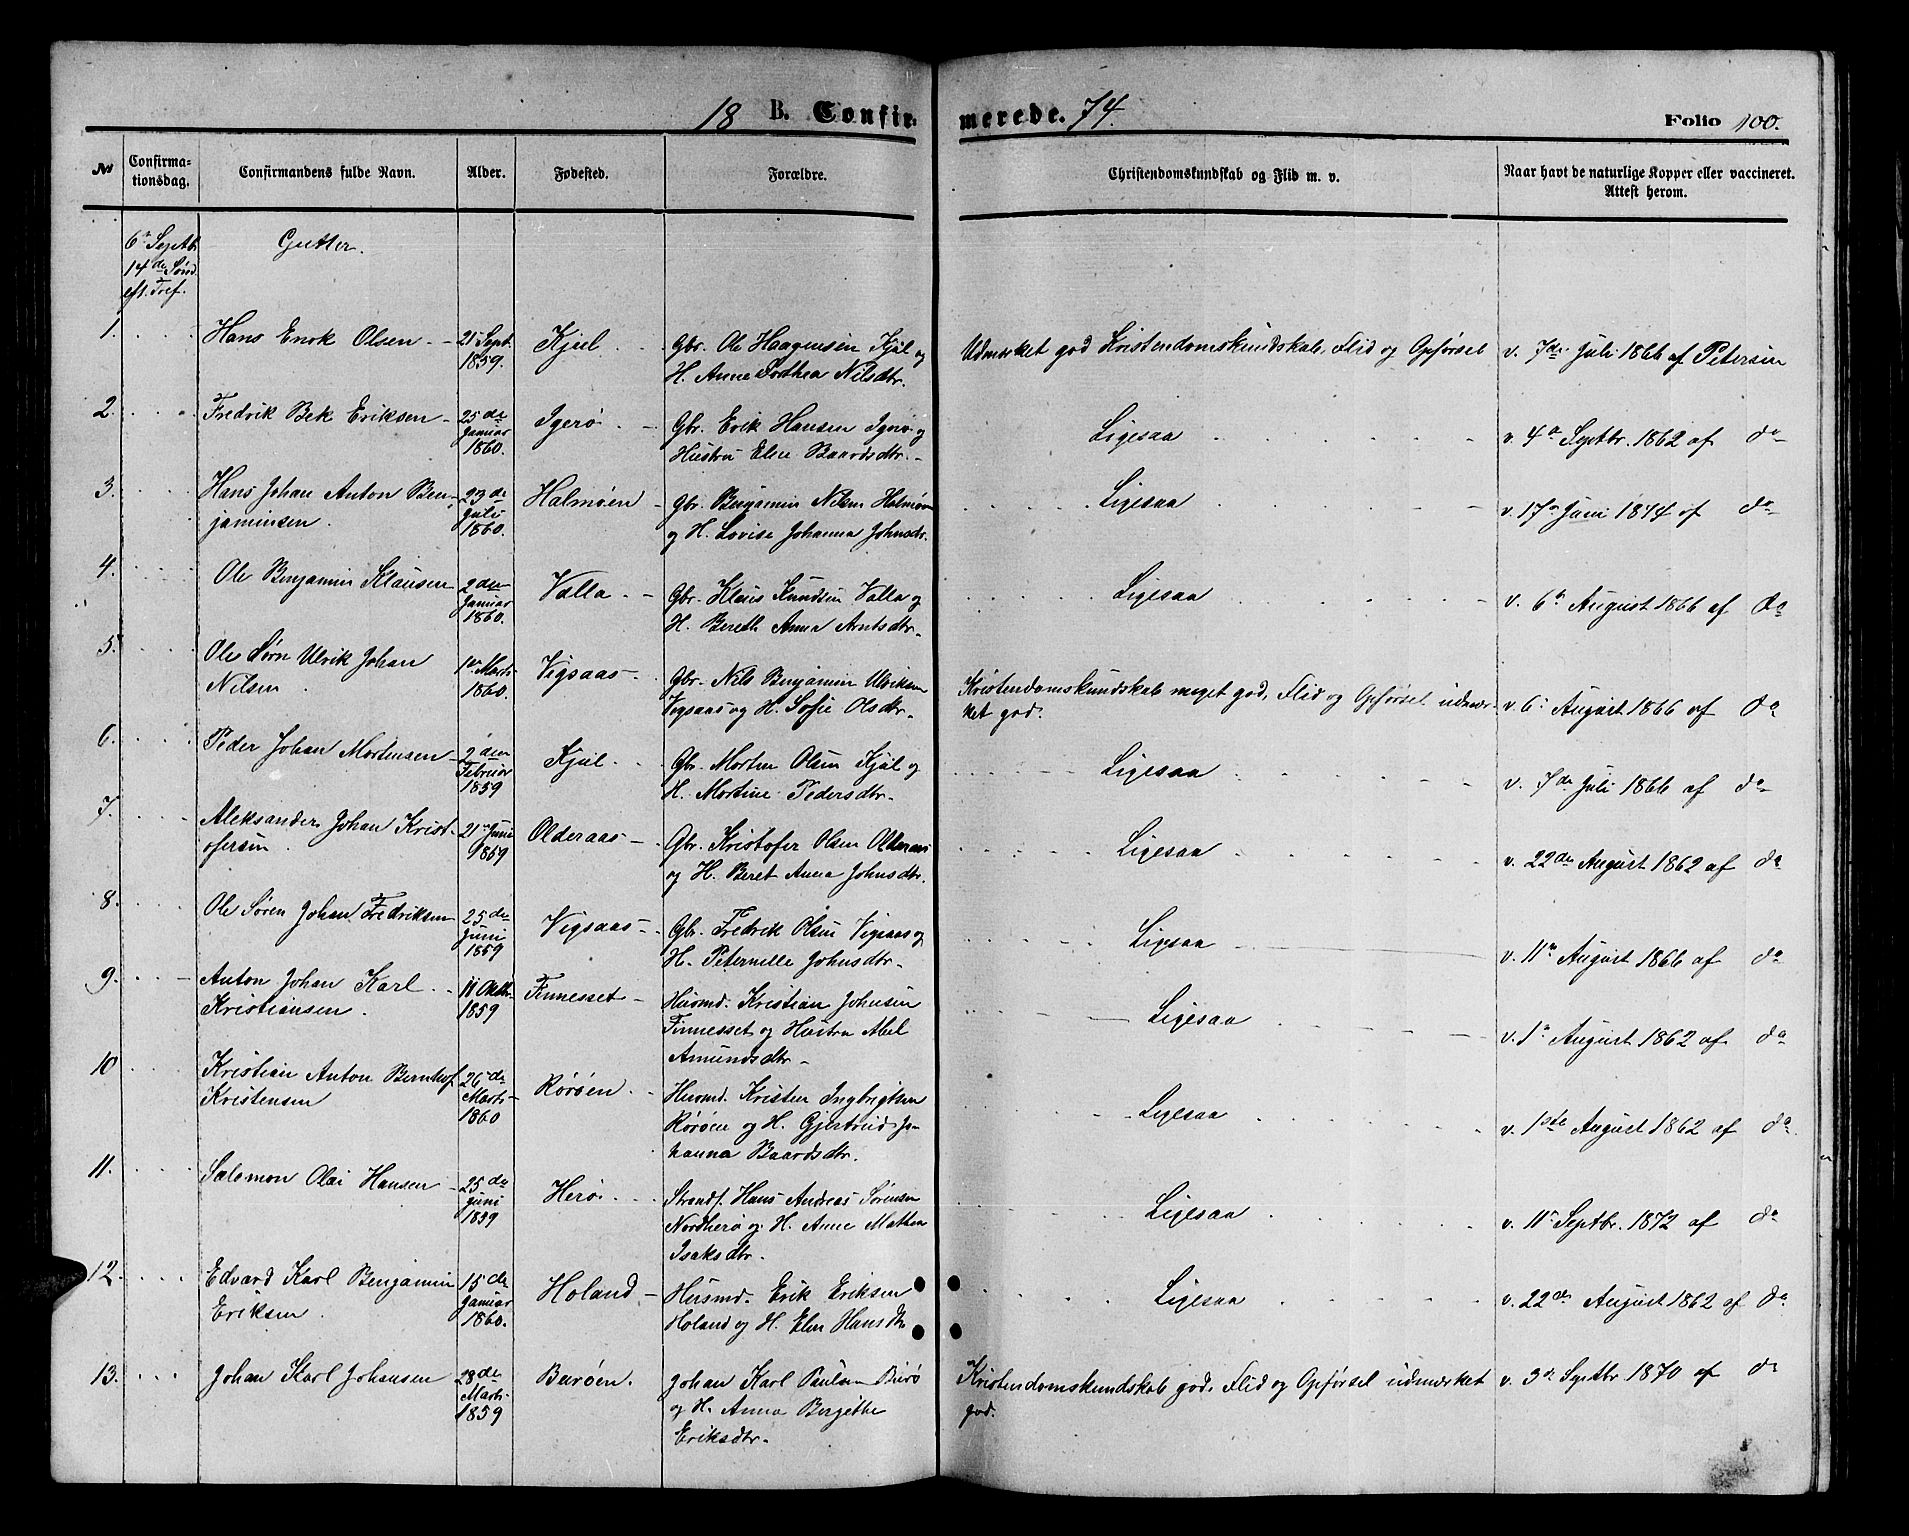 18 B. Confirmerede. 74.
Folio 100.
№ Confirmationsdag. Confirmandens fulde Navn. Alder. Fødested. Forældre. Christendomskundskab og Flid m. v. Naar havt de naturlige Kopper eller vaccineret. Attest herom.
6te Septbr. Gutter.
14de Sønd.
eft. Tref.
1. Hans Enok Olsen 21 Sept. Kjul Gbr. Ole Haagensen Kjul og Udmærket god Kristendomskundskab, Flid og Opførsel v. 7de Juli 1866 af Petersen
1859. H. Anne Dorthea Nilsdtr.
2. Fredrik Bek Eriksen 25de Igerø Gbr. Erik Hansen Igerø og Ligesaa v. 4de Septbr. 1862 af do
Januar Hustru Elen Baardsdtr.
1860.
3. Hans Johan Anton Ben- 23de Halmøen Gbr. Benjamin Nilsen Halmøen Ligesaa v. 17de Juni 1874 af do
jaminsen. Juli og H. Lovise Johanna Johnsdtr.
1860.
4. Ole Benjamin Klausen 2den Valla Gbr. Klaus Knudsen Valla og Ligesaa v. 6te August 1866 af do
Januar H. Bereth Anna Arntsdtr.
1860.
5. Ole Sørn Ulrik Johan 1ste Marts Vigsaas Gbr. Nils Benjamin Ulriksen Kristendomskundskab meget god, Flid og Opførsel udmær- v. 6te August 1866 af do
Nilsen. 1860. Vigsaas og H. Sofie Olsdtr. ket god.
6. Peder Johan Mortensen 2den Kjul Gbr. Morten Olsen Kjul og Ligesaa v. 7de Juli 1866 af do
Februar H. Martine Pedersdtr.
1859
7. Aleksander Johan Krist- 21 Juni Olderaas Gbr. Kristofer Olsen Olderaas Ligesaa v. 22de August 1862 af do
ofersen. 1859 og H. Beret Anna Johnsdtr.
8. Ole Søren Johan Fredriksen 25de Vigsaas Gbr. Fredrik Olsen Vigsaas og Ligesaa v. 11te August 1866 af do
Juni H. Peternelle Johnsdtr.
1859
9. Anton Johan Karl 11 Oktbr. Finnesset Husmd. Kristian Johnsen Ligesaa v. 1ste August 1862 af do
Kristiansen. 1859 Finnesset og Hustru Abel
Amundsdtr.
10 Kristian Anton Bernhof 26de Rørøen Husmd. Kristen Ingbrigtsen Ligesaa v. 1ste August 1862 af do
Kristensen Marts Rørøen og H. Gjertrud Jo-
1860 hanna Baardsdtr.
11. Salomon Olai Hansen 25de Herø Strandf. Hans Andreas Sørensen Ligesaa v. 11te Septbr. 1872 af do
Juni Nordherø og H. Anne Mathea
1859 Isaksdtr.
12. Edvard Karl Benjamin 15de Holand Husmd. Erik Eriksen Ligesaa v. 22de August 1862 af do
Eriksen. Januar Holand og H. Elen Hansdtr.
1860.
13. Johan Karl Johansen 28de Burøen. Johan Karl Paulsen Burø Kristendomskundskab god, Flid og Opførsel udmærket v. 3de Septbr. 1870 af do
Marts og H. Anna Bergithe god.
1859 Eriksdtr.